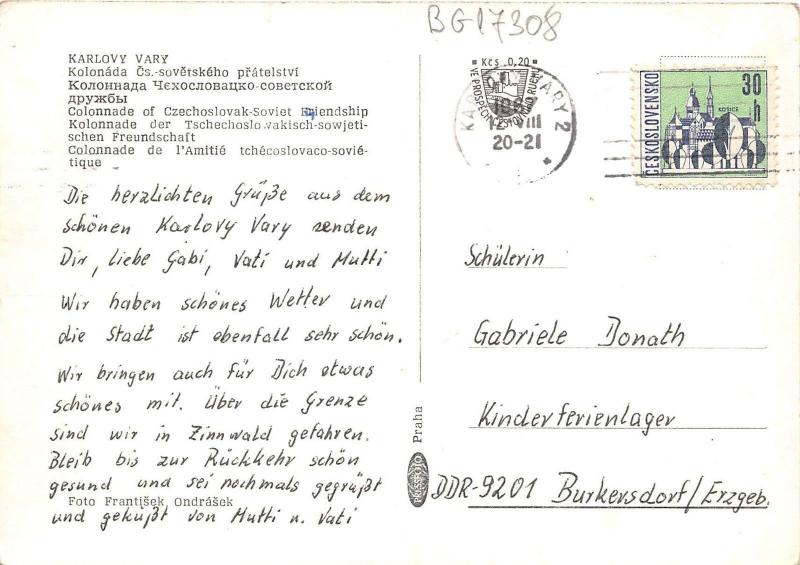 BG17308
KARLOVY VARY
Kolonáda Čs.-sovětského přátelství
Колоннада Чехословацко-советской
дружбы
Colonnade of Czechoslovak-Soviet Friendship
Kolonnade der Tschechoslowakisch-sowjeti-
schen Freundschaft
Colonnade de l'Amitié tchécoslovaco-sovié-
tique
Die herzlichten Grüße aus dem
schönen Karlovy Vary senden
Dir, liebe Gabi, Vati und Mutti
Wir haben schönes Wetter und
die Stadt ist ebenfall sehr schön.
Wir bringen auch für Dich etwas
schönes mit. Über die Grenze
sind wir in Zinnwald gefahren.
Bleib bis zur Rückkehr schön
gesund und sei nochmals gegrüßt
Foto František Ondrášek
und geküßt von Mutti u. Vati
Praha
PRESSFOTO
Kčs 0,20
VE PROSPĚCH
KARLOVY VARY 2
VIII
20-21
ČESKOSLOVENSKO
30
h
KOŠICE
Schülerin
Gabriele Donath
Kinderferienlager
DDR-9201 Burkersdorf/Erzgeb.